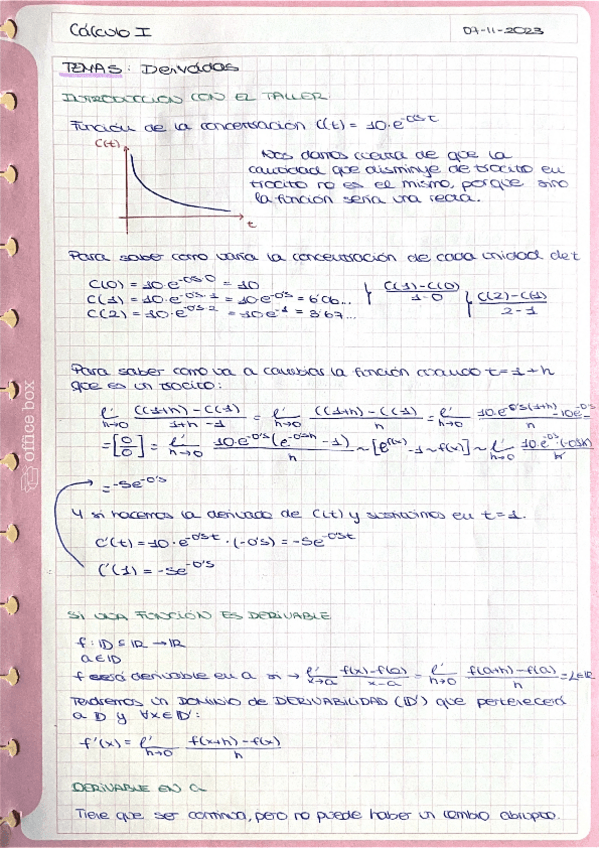 Cálculo I
07-11-2023
TEMA5: Derivadas
INTRODUCCIÓN CON EL TALLER.
Función de la concentración C(t) = 10·e^-0's t
C(t)
t
Nos damos cuenta de que la
cantidad que disminuye de trocito en
trocito no es el mismo, porque sino
la función sería una recta.
Para saber como varía la concentración de cada unidad de t
C(0) = 10·e^-0's·0 = 10
C(1) = 10·e^-0's·1 = 10e^-0's = 6'06...
C(2) = 10·e^-0's·2 = 10e^-1 = 3'67...
} (C(1)-C(0))/(1-0) } (C(2)-C(1))/(2-1)
Para saber como va a cambiar la función cuando t=1+h
que es un trocito:
lí h→0 (C(1+h)-C(1))/(1+h-1) = lí h→0 (C(1+h)-C(1))/h = lí h→0 (10·e^-0's(1+h) - 10e^-0's)/h
= [0/0] = lí h→0 (10·e^-0's(e^-0'sh - 1))/h ~ [e^f(x) - 1 ~ f(x)] ~ lí h→0 (10·e^-0's·(-0'sh))/h
= -5e^-0's
Y si hacemos la derivada de C(t) y sustituimos en t=1.
C'(t) = 10·e^-0's t·(-0's) = -5e^-0's t
C'(1) = -5e^-0's
SI UNA FUNCIÓN ES DERIVABLE
f: D ⊆ R → R
a ∈ D
f será derivable en a si → lí x→a (f(x)-f(a))/(x-a) = lí h→0 (f(a+h)-f(a))/h = L∈R
Tendremos un DOMINIO de DERIVABILIDAD (D') que pertenecerá
a D y ∀x∈D':
f'(x) = lí h→0 (f(x+h)-f(x))/h
DERIVABLE EN a
Tiene que ser continua, pero no puede haber un cambio abrupto.
office box